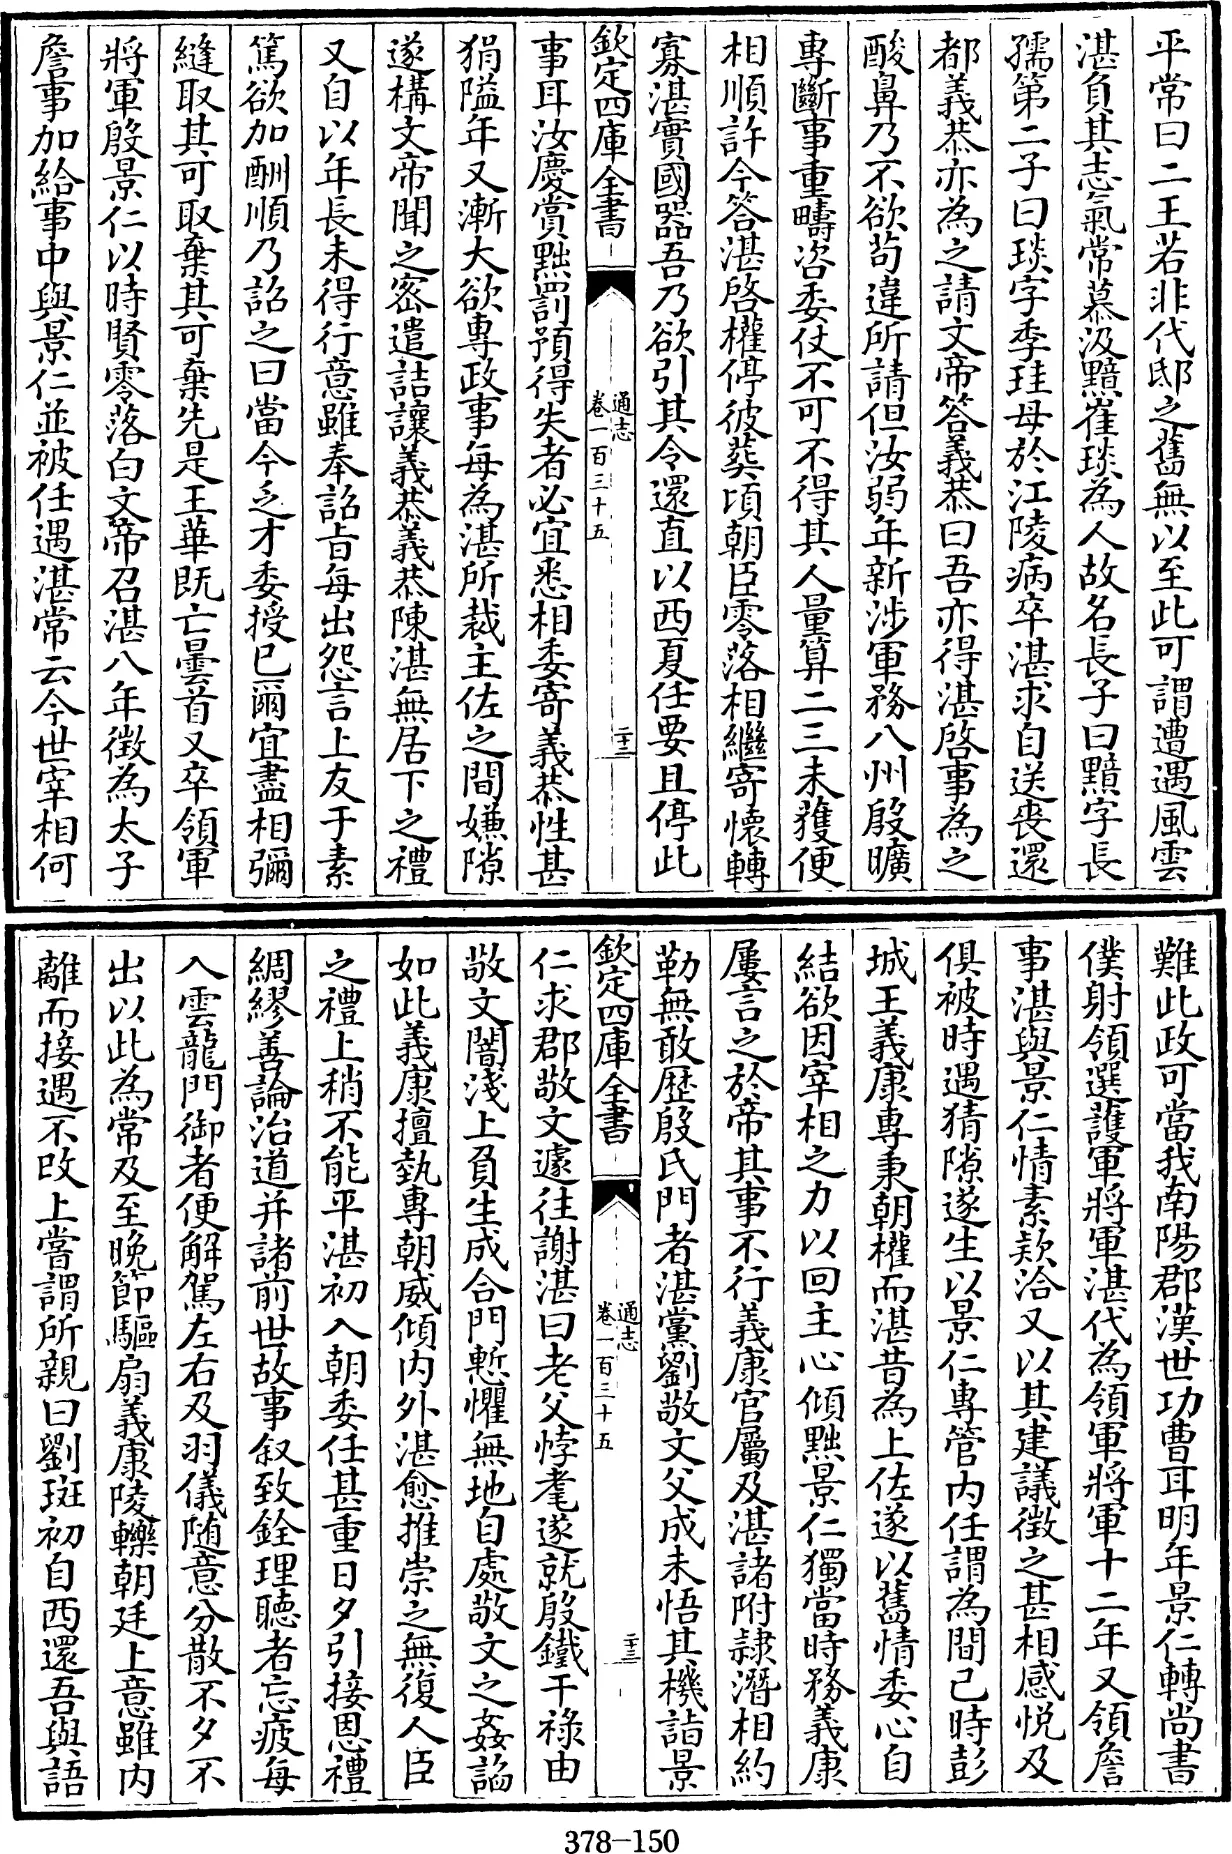 平常曰二王若非代邸之舊無以至此可謂遭遇風雲
湛負其志氣常慕汲黯崔琰為人故名長子曰黯字長
孺第二子曰琰字季珪母於江陵病卒湛求自送喪還
都義恭亦為之請文帝答義恭曰吾亦得湛啓事為之
酸鼻乃不欲苟違所請但汝弱年新涉軍務八州殷曠
專斷事重疇咨委仗不可不得其人量算二三未獲便
相順許今答湛啓權停彼葬頃朝臣零落相繼寄懷轉
寡湛實國器吾乃欲引其令還直以西夏任要且停此
欽定四庫全書
通志
卷一百三十五
二十二
事耳汝慶賞黜罰預得失者必宜悉相委寄義恭性甚
狷隘年又漸大欲專政事每為湛所裁主佐之間嫌隙
遂構文帝聞之密遣詰讓義恭義恭陳湛無居下之禮
又自以年長未得行意雖奉詔旨每出怨言上友于素
篤欲加酬順乃詔之曰當今乏才委授已爾宜盡相彌
縫取其可取棄其可棄先是王華既亡曇首又卒領軍
將軍殷景仁以時賢零落白文帝召湛八年徵為太子
詹事加給事中與景仁並被任遇湛常云今世宰相何
難此政可當我南陽郡漢世功曹耳明年景仁轉尚書
僕射領選護軍將軍湛代為領軍將軍十二年又領詹
事湛與景仁情素款洽又以其建議徵之甚相感悅及
俱被時遇猜隙遂生以景仁專管內任謂為間己時彭
城王義康專秉朝權而湛昔為上佐遂以舊情委心自
結欲因宰相之力以回主心傾黜景仁獨當時務義康
屢言之於帝其事不行義康官屬及湛諸附隷潛相約
勒無敢歴殷氏門者湛黨劉敬文父成未悟其機詣景
欽定四庫全書
通志
卷一百三十五
二十三
仁求郡敬文遽往謝湛曰老父悖耄遂就殷鐵干祿由
敬文闇淺上負生成合門慙懼無地自處敬文之姦諂
如此義康擅執專朝威傾內外湛愈推崇之無復人臣
之禮上稍不能平湛初入朝委任甚重日夕引接恩禮
綢繆善論治道并諸前世故事叙致銓理聽者忘疲每
入雲龍門御者便解駕左右及羽儀随意分散不夕不
出以此為常及至晚節驅扇義康陵轢朝廷上意雖內
離而接遇不改上嘗謂所親曰劉斑初自西還吾與語
378-150